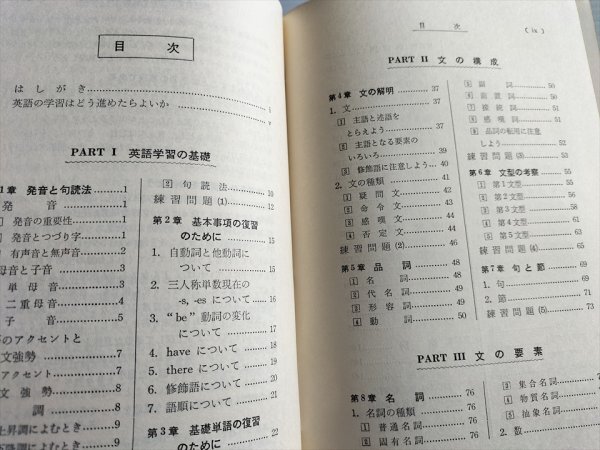 目次
はしがき i
英語の学習はどう進めたらよいか v
PART I 英語学習の基礎
1章 発音と句読法 1
発音 1
発音の重要性 1
発音とつづり字 1
有声音と無声音
母音と子音
単母音
二重母音
子音 5
のアクセントと
文強勢 7
アクセント 7
文強勢 8
調 8
上昇調によむとき 9
9
2 句読法 10
練習問題 (1) 12
第2章 基本事項の復習
のために 15
1. 自動詞と他動詞に
ついて 15
2. 三人称単数現在の
-s, -es について 16
3. “be” 動詞の変化
について 17
4. have について 18
5. there について 19
6. 修飾語について 20
7. 語順について 21
第3章 基礎単語の復習
のために 22
目次 (ix)
PART II 文の構成
第4章 文の解明 37
1. 文 37
1 主語と述語を
とらえよう 38
2 主語となる要素の
いろいろ 39
3 修飾語に注意しよう 40
2. 文の種類 41
1 疑問文
2 命令文
3 感嘆文
4 否定文
練習問題 (2) 46
第5章 品詞 48
1 名詞
2 代名詞
3 形容詞
4 動詞
5 副詞 50
6 前置詞 50
7 接続詞 51
8 感嘆詞 51
9 品詞の転用に注意
しよう 52
練習問題 (3) 53
第6章 文型の考察 55
1 第1文型 55
2 第2文型
3 第3文型
4 第4文型
5 第5文型
練習問題 (4) 65
第7章 句と節
1. 句
2. 節 71
練習問題 (5) 73
PART III 文の要素
第8章 名詞 76
1. 名詞の種類 76
1 普通名詞 76
2 固有名詞
3 集合名詞
4 物質名詞
5 抽象名詞
2. 数